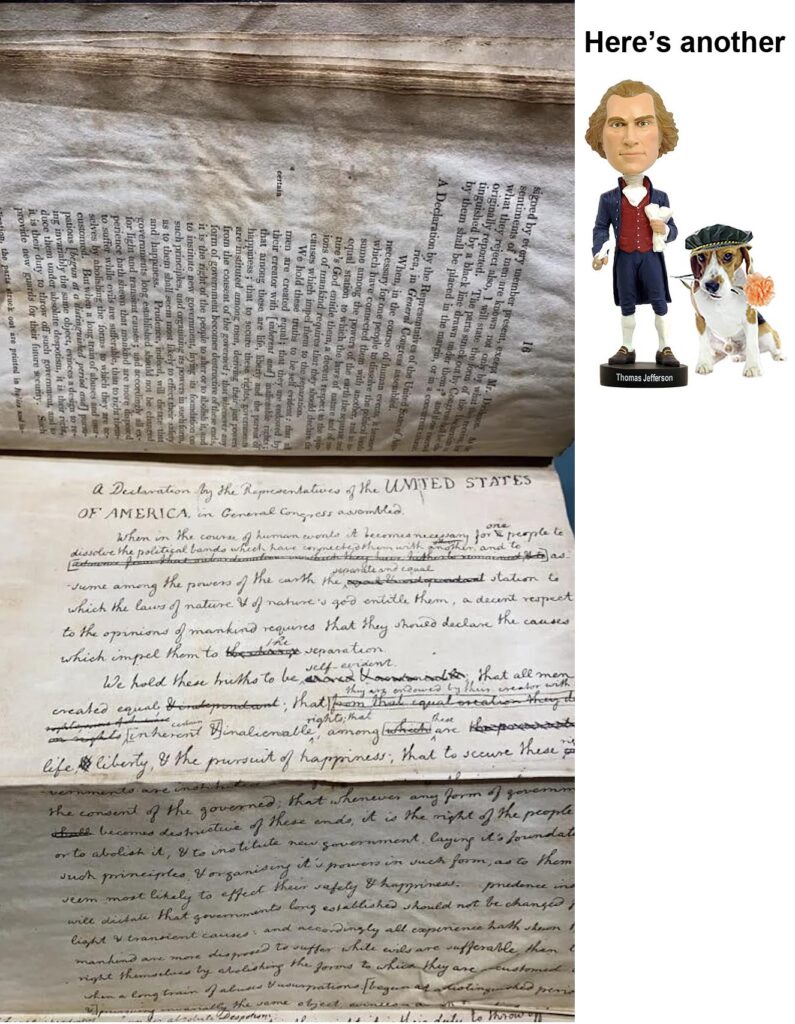 Here's another
Thomas Jefferson
16
signed by every member present, except Mr.
sentiments of men are known not only by
what they reject also, I will state the form of
originally reported. The parts struck out by Congress
tinguished by a black line drawn under them;
by them shall be placed in the margin, or in a concurrent
A Declaration by the Representatives of the United States of
rica, in General Congress assembled.
When, in the course of human events, it becomes
necessary for one people to dissolve the political bands
which have connected them with another, and to as-
sume among the powers of the earth the separate and
equal station to which the laws of nature and of na-
ture's God entitle them, a decent respect to the opin-
ions of mankind requires that they should declare the
causes which impel them to the separation.
We hold these truths to be self evident: that all
men are created equal; that they are endowed by
certain
their creator with [inherent and] inalienable rights;
that among these are life, liberty and the pursuit of
happiness; that to secure these rights, governments
are instituted among men, deriving their just powers
from the consent of the governed; that whenever any
form of government becomes destructive of these ends,
it is the right of the people to alter or to abolish it, and
to institute new government, laying its foundation on
such principles, and organizing its powers in such form,
as to them shall seem most likely to effect their safety
and happiness. Prudence, indeed, will dictate that
governments long established should not be changed
for light and transient causes; and accordingly all ex-
perience hath shown that mankind are more disposed
to suffer while evils are sufferable, than to right them-
selves by abolishing the forms to which they are ac-
customed. But when a long train of abuses and usur-
pations [begun at a distinguished period and] pursu-
ing invariably the same object, evinces a design to re-
duce them under absolute despotism, it is their right,
it is their duty to throw off such government, and to
provide new guards for their future security. Such
the parts struck out are printed in Italics and in-
A Declaration by the Representatives of the UNITED STATES
OF AMERICA, in General Congress assembled.
one
When in the course of human events it becomes necessary for a people to
dissolve the political bands which have connected them with another, and to
as-
separate and equal
-sume among the powers of the earth the station to
which the laws of nature & of nature's god entitle them, a decent respect
to the opinions of mankind requires that they should declare the causes
the
which impel them to the change separation.
self-evident.
We hold these truths to be that all men
they are endowed by their creator with
created equal & independant; that from that equal creation they
certain rights; that these
inherent & inalienable, among which are
life, & liberty, & the pursuit of happiness; that to secure these
vernments are
the consent of the governed; that whenever any form of governm
shall becomes destructive of these ends, it is the right of the people
or to abolish it, & to institute new government, laying it's foundat
such principles & organising it's powers in such form, as to them
seem most likely to effect their safety & happiness. prudence in
will dictate that governments long established should not be changed f
light & transient causes: and accordingly all experience hath shewn
mankind are more disposed to suffer while evils are sufferable than
right themselves by abolishing the forms to which they are accustomed
when a long train of abuses & usurpations [begun at a distinguished perio
& pursuing invariably the same object, evinces a
Despotism
duty to throw off